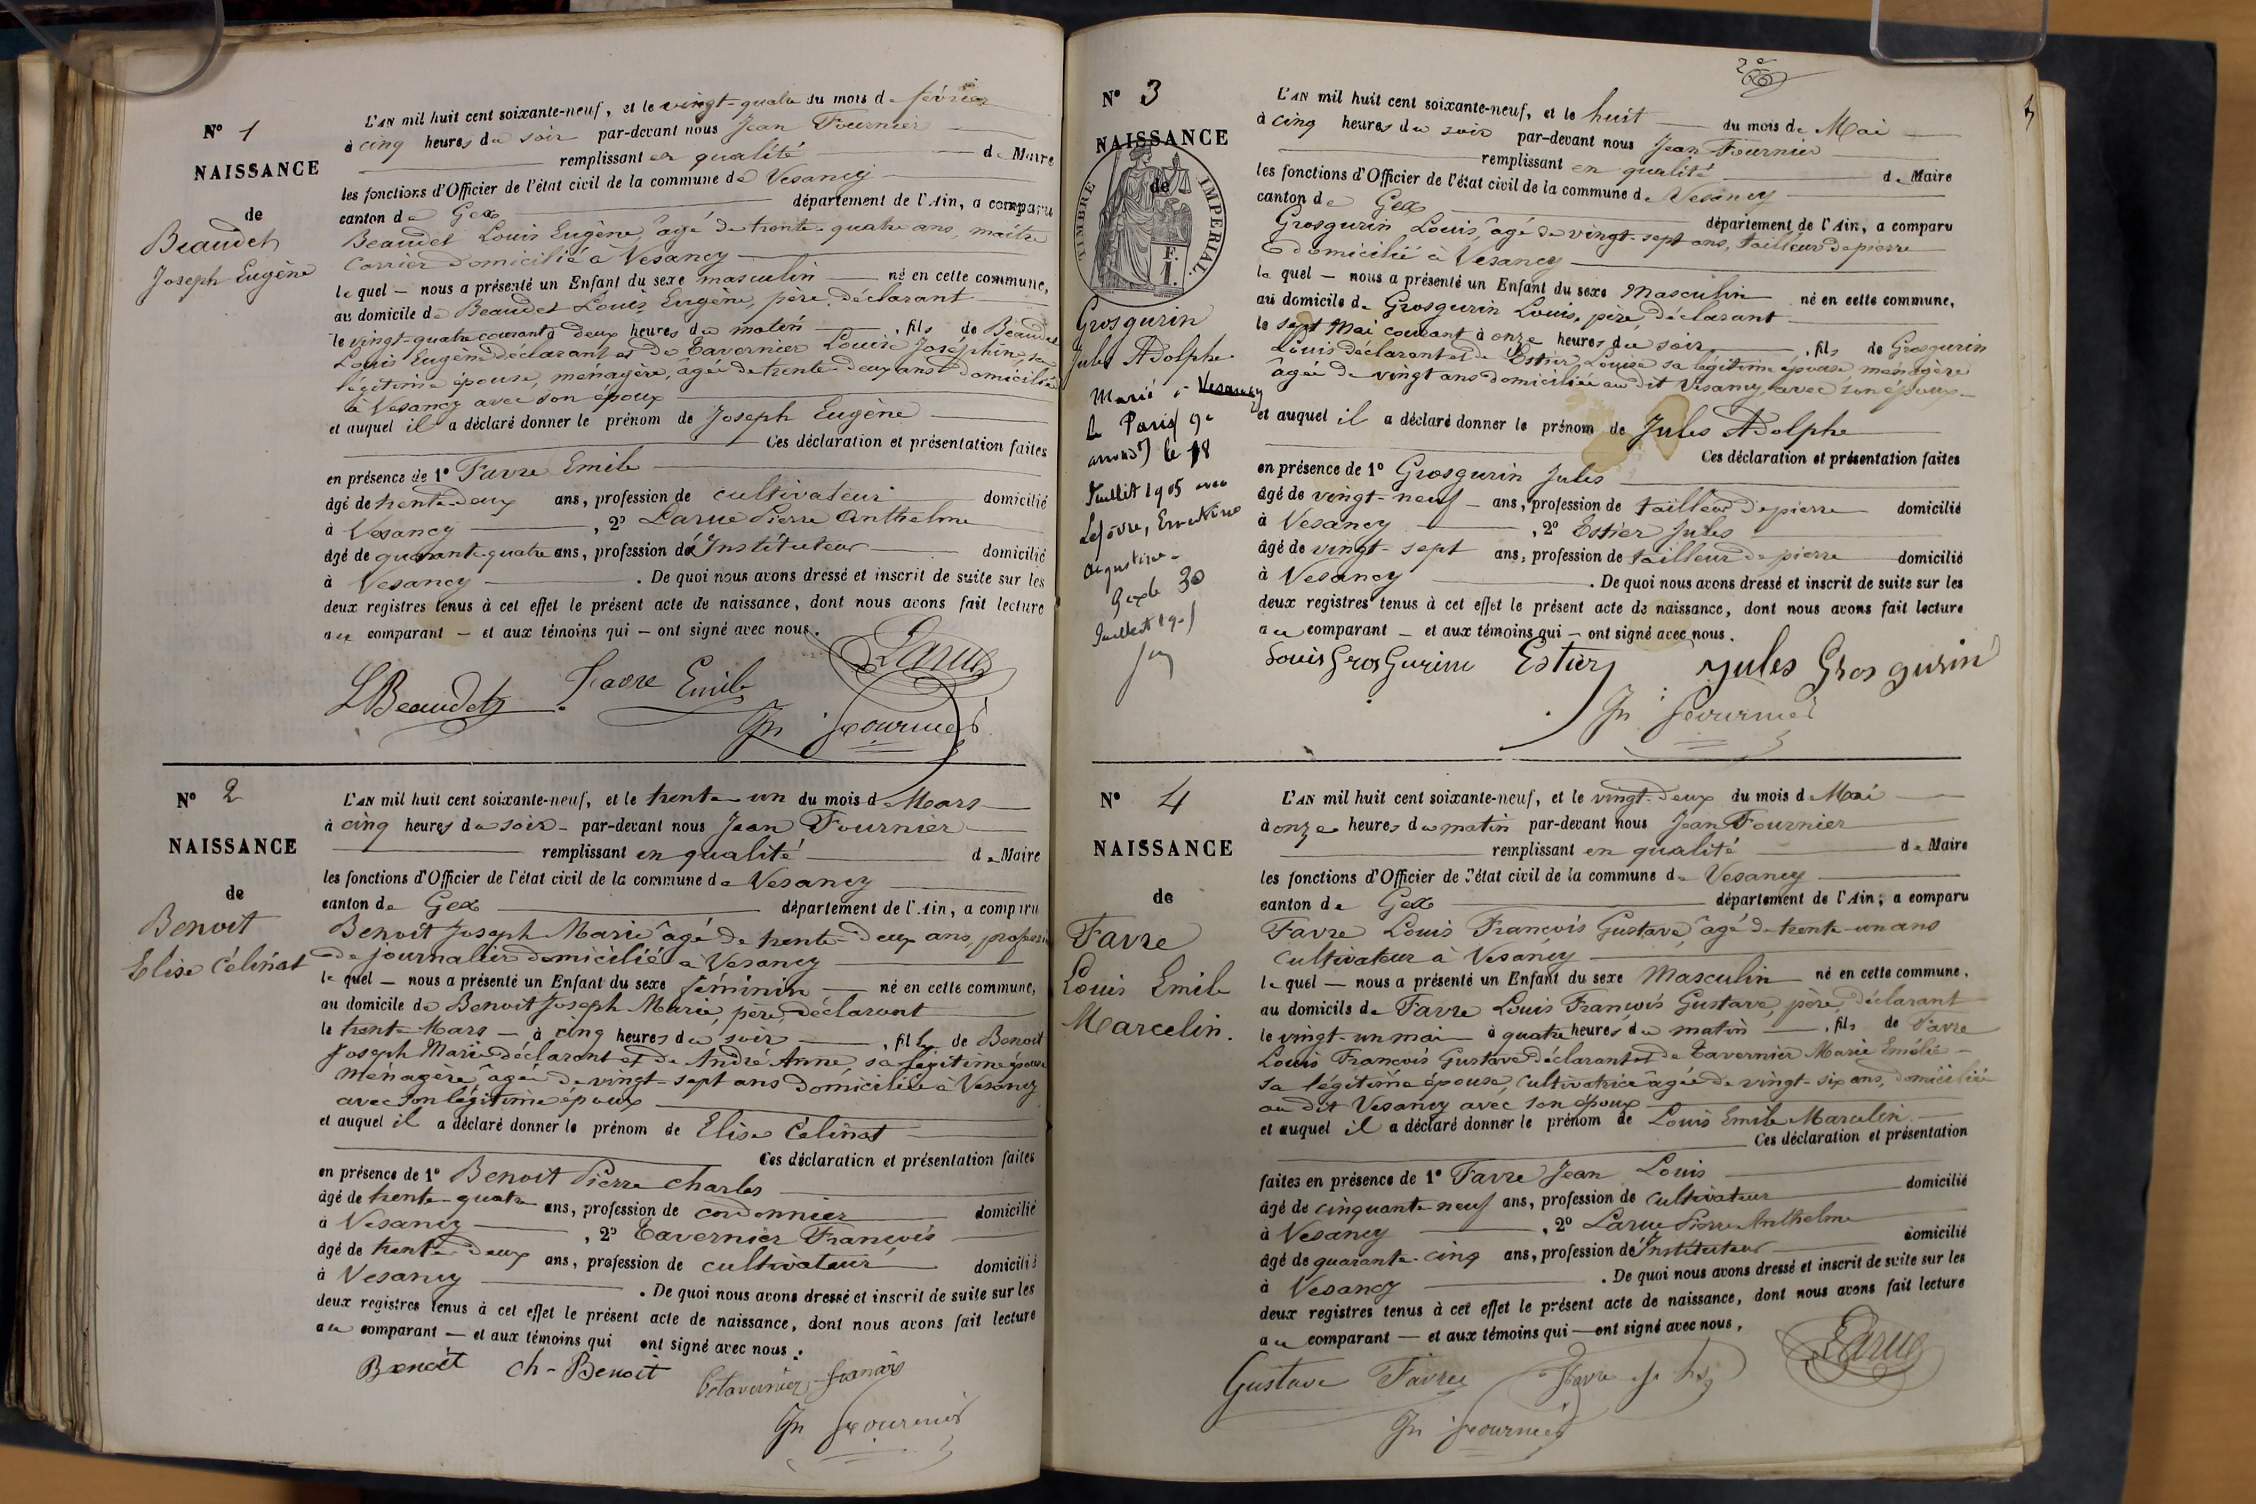 N° 1
NAISSANCE
de
Beaudet
Joseph Eugène
L'AN mil huit cent soixante-neuf, et le vingt-quatre du mois de février
à cinq heures du soir par-devant nous Jean Fournier
remplissant en qualité de Maire
les fonctions d'Officier de l'état civil de la commune de Vesancy
canton de Gex département de l'Ain, a comparu
Beaudet Louis Eugène âgé de trente-quatre ans, maître
carrier domicilié à Vesancy
lequel — nous a présenté un Enfant du sexe masculin né en cette commune,
au domicile de Beaudet Louis Eugène, père, déclarant
le vingt-quatre courant à deux heures du matin, fils de Beaudet
Louis Eugène déclarant et de Tavernier Louise Joséphine, sa
légitime épouse, ménagère, âgée de trente-deux ans domiciliée
à Vesancy avec son époux
et auquel il a déclaré donner le prénom de Joseph Eugène
Ces déclaration et présentation faites
en présence de 1° Favre Emile
âgé de trente-deux ans, profession de cultivateur domicilié
à Vesancy, 2° Larue Pierre Anthelme
âgé de quarante-quatre ans, profession d'Instituteur domicilié
à Vesancy. De quoi nous avons dressé et inscrit de suite sur les
deux registres tenus à cet effet le présent acte de naissance, dont nous avons fait lecture
au comparant — et aux témoins qui — ont signé avec nous.
LBeaudet Favre Emile Larue
Jn Fournier
N° 2
NAISSANCE
de
Benoit
Elise Célinat
L'AN mil huit cent soixante-neuf, et le trente-un du mois de Mars
à cinq heures du soir par-devant nous Jean Fournier
remplissant en qualité de Maire
les fonctions d'Officier de l'état civil de la commune de Vesancy
canton de Gex département de l'Ain, a comparu
Benoit Joseph Marie âgé de trente-deux ans, profession
de journalier domicilié à Vesancy
lequel — nous a présenté un Enfant du sexe féminin né en cette commune,
au domicile de Benoit Joseph Marie, père, déclarant
le trente Mars — à cinq heures du soir, fille de Benoit
Joseph Marie déclarant et de André Anne, sa légitime épouse
ménagère, âgée de vingt-sept ans domiciliée à Vesancy
avec son légitime époux
et auquel il a déclaré donner le prénom de Elise Célinat
Ces déclaration et présentation faites
en présence de 1° Benoit Pierre Charles
âgé de trente-quatre ans, profession de cordonnier domicilié
à Vesancy, 2° Tavernier François
âgé de trente-deux ans, profession de cultivateur domicilié
à Vesancy. De quoi nous avons dressé et inscrit de suite sur les
deux registres tenus à cet effet le présent acte de naissance, dont nous avons fait lecture
au comparant — et aux témoins qui ont signé avec nous.
Benoit ch-Benoit tavernier françois
Jn Fournier
2e
3
N° 3
NAISSANCE
de
TIMBRE IMPERIAL.
F.
1.
Grosgurin
Jules Adolphe
Marié à Vesancy
à Paris 9e
arrond) le 18
Juillet 1905 avec
Lefèvre, Ernestine
Augustine
Gex le 30
Juillet 1905
L'AN mil huit cent soixante-neuf, et le huit du mois de Mai
à cinq heures du soir par-devant nous Jean Fournier
remplissant en qualité de Maire
les fonctions d'Officier de l'état civil de la commune de Vesancy
canton de Gex département de l'Ain, a comparu
Grosgurin Louis, âgé de vingt-sept ans, tailleur de pierre
domicilié à Vesancy
lequel — nous a présenté un Enfant du sexe Masculin né en cette commune,
au domicile de Grosgurin Louis, père, déclarant
le sept Mai courant à onze heures du soir, fils de Grosgurin
Louis déclarant et de Estier Louise sa légitime épouse ménagère
âgée de vingt ans domiciliée au dit Vesancy avec son époux
et auquel il a déclaré donner le prénom de Jules Adolphe
Ces déclaration et présentation faites
en présence de 1° Grosgurin Jules
âgé de vingt-neuf ans, profession de tailleur de pierre domicilié
à Vesancy, 2° Estier Jules
âgé de vingt-sept ans, profession de tailleur de pierre domicilié
à Vesancy. De quoi nous avons dressé et inscrit de suite sur les
deux registres tenus à cet effet le présent acte de naissance, dont nous avons fait lecture
au comparant — et aux témoins qui — ont signé avec nous.
Louis Gros Gurin Estier Jules Gros gurin
Jn Fournier
N° 4
NAISSANCE
de
Favre
Louis Emile
Marcelin.
L'AN mil huit cent soixante-neuf, et le vingt-deux du mois de Mai
à onze heures du matin par-devant nous Jean Fournier
remplissant en qualité de Maire
les fonctions d'Officier de l'état civil de la commune de Vesancy
canton de Gex département de l'Ain, a comparu
Favre Louis François Gustave, âgé de trente-un ans
cultivateur à Vesancy
lequel — nous a présenté un Enfant du sexe Masculin né en cette commune,
au domicile de Favre Louis François Gustave, père, déclarant
le vingt-un mai à quatre heures du matin, fils de Favre
Louis François Gustave déclarant et de Tavernier Marie Emélie
sa légitime épouse, cultivatrice âgée de vingt-six ans, domiciliée
au dit Vesancy avec son époux
et auquel il a déclaré donner le prénom de Louis Emile Marcelin
Ces déclaration et présentation
faites en présence de 1° Favre Jean Louis
âgé de cinquante-neuf ans, profession de cultivateur domicilié
à Vesancy, 2° Larue Pierre Anthelme
âgé de quarante-cinq ans, profession d'Instituteur domicilié
à Vesancy. De quoi nous avons dressé et inscrit de suite sur les
deux registres tenus à cet effet le présent acte de naissance, dont nous avons fait lecture
au comparant — et aux témoins qui — ont signé avec nous.
Gustave Favre Favre Larue
Jn Fournier